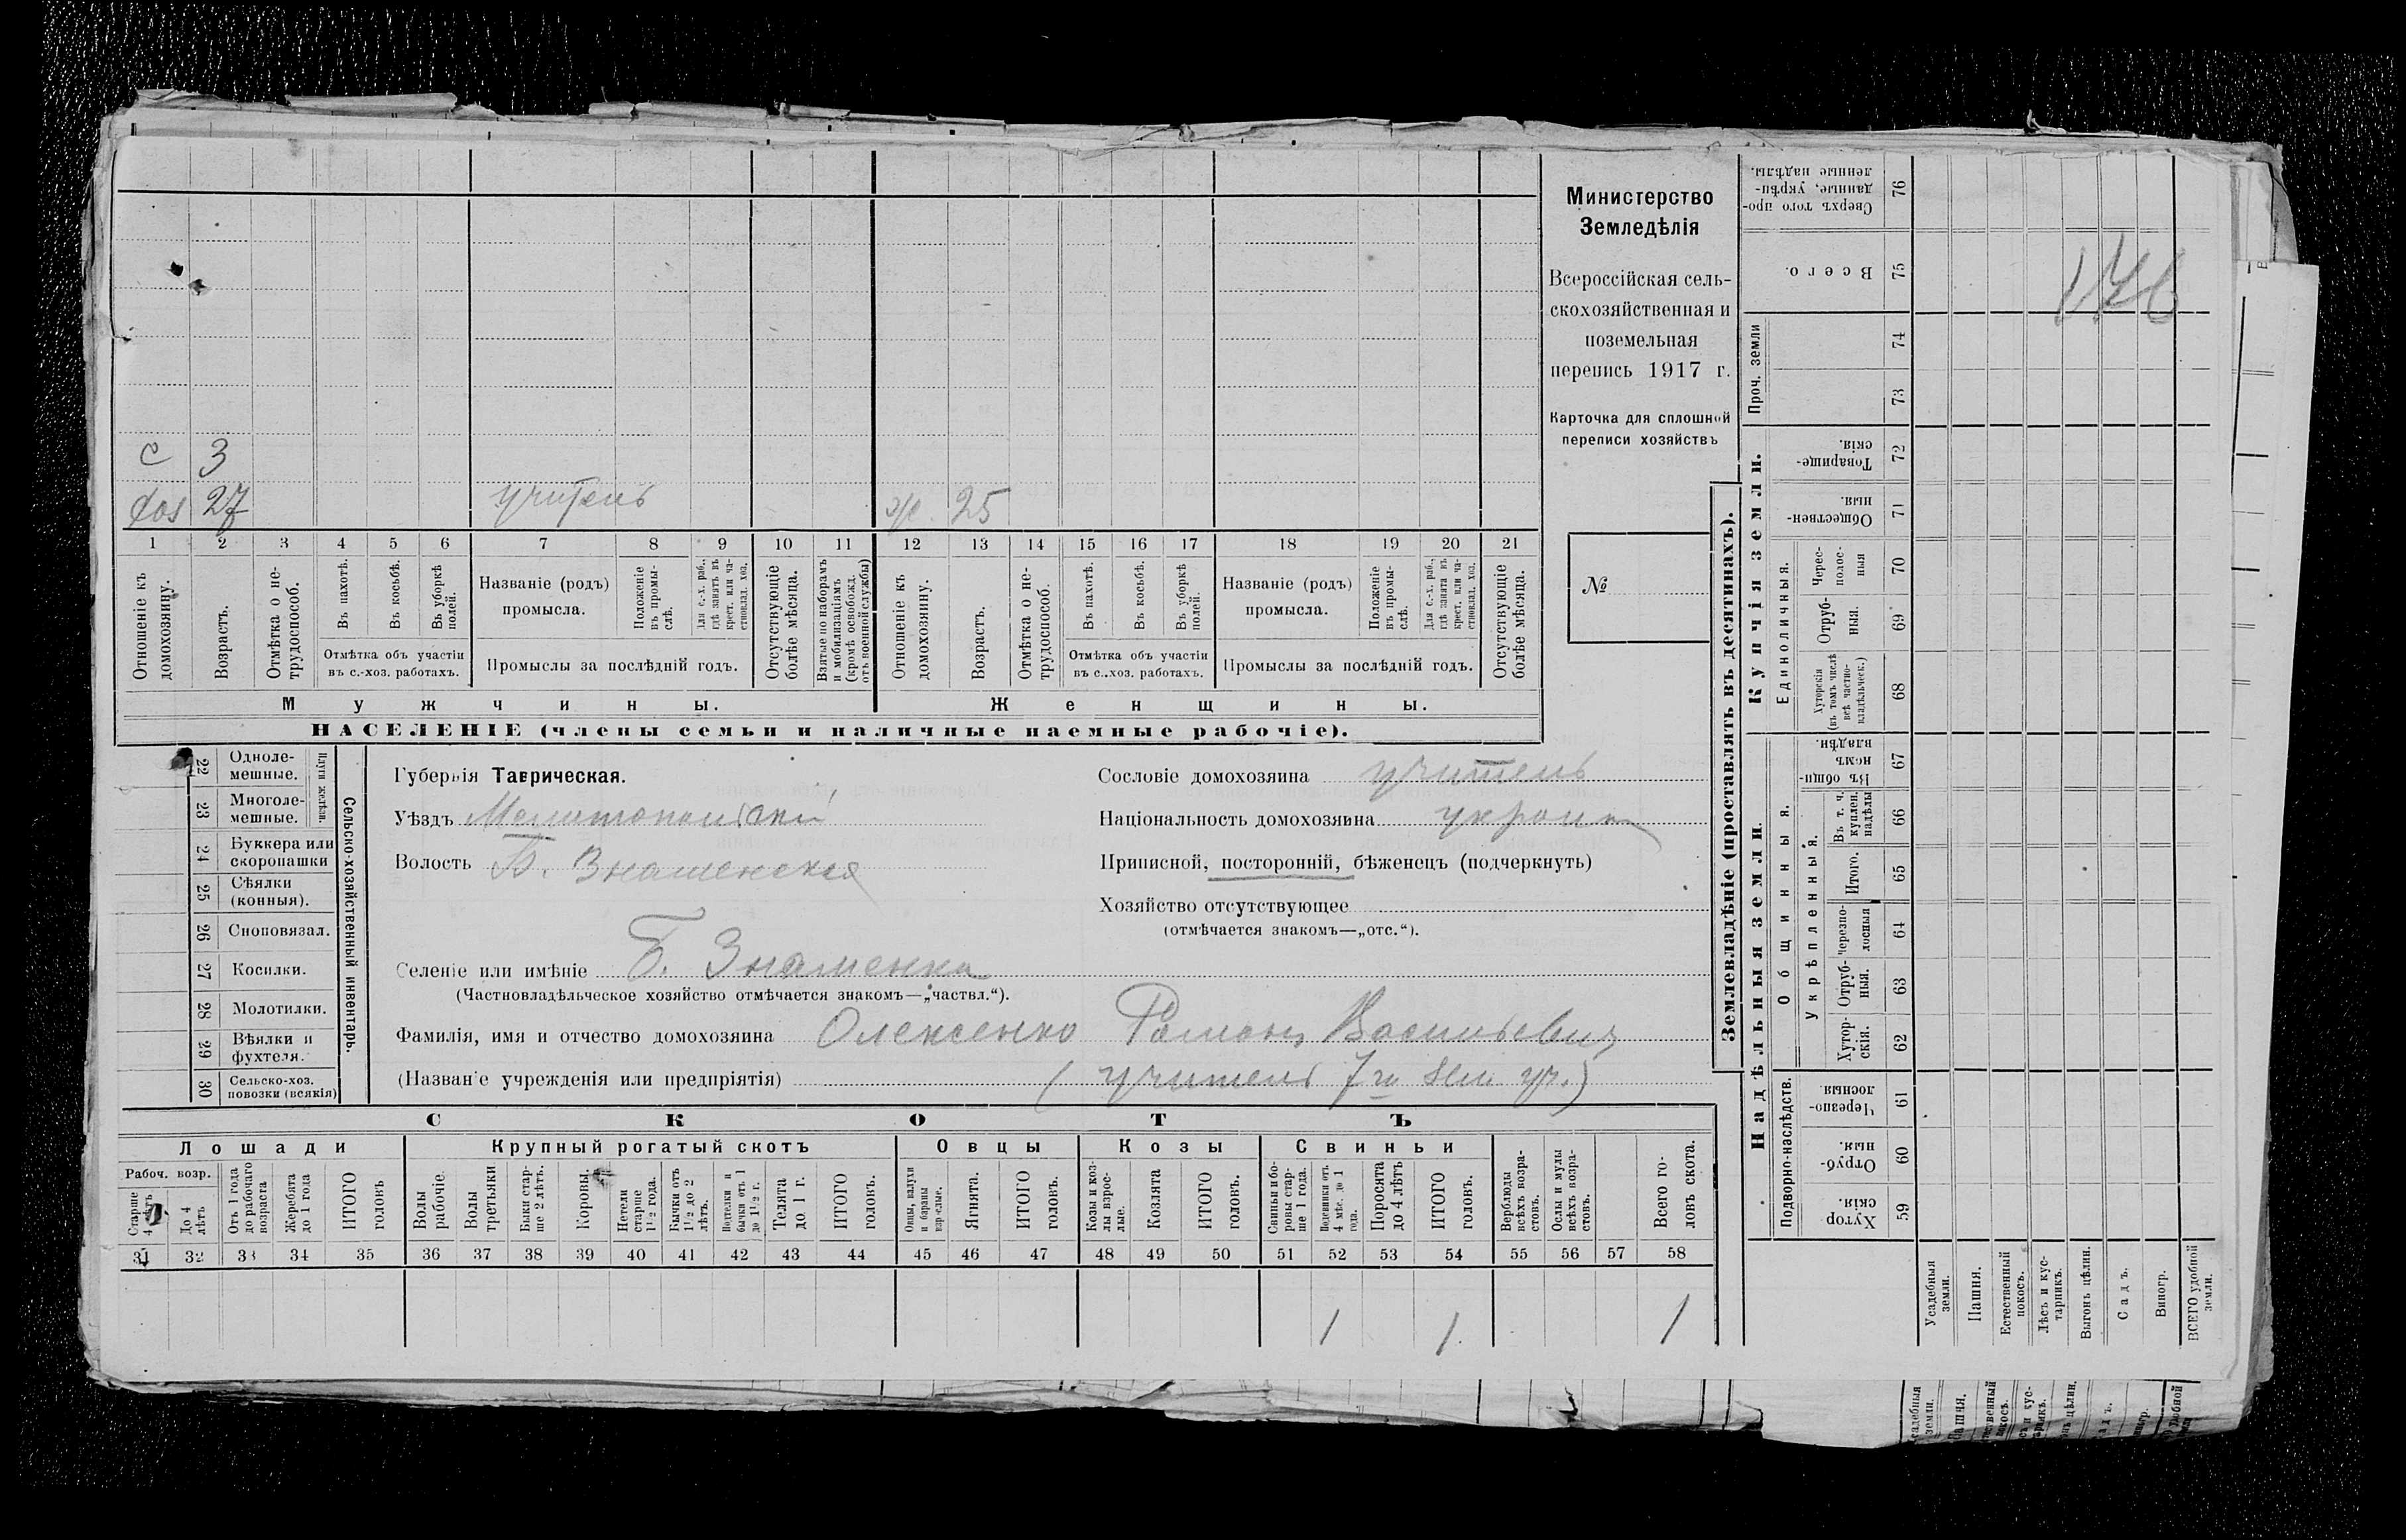 Министерство
Земледѣлія
Всероссійская сель-
скохозяйственная и
поземельная
перепись 1917 г.
Карточка для сплошной
переписи хозяйствъ
№
176
с 3
27 учитель ж. 25
1 2 3 4 5 6 7 8 9 10 11 12 13 14 15 16 17 18 19 20 21
Отношеніе къ домохозяину.
Возрастъ.
Отмѣтка о не-трудоспособ.
Въ пахотѣ.
Въ косьбѣ.
Въ уборкѣ полей.
Отмѣтка объ участіи
въ с.-хоз. работахъ.
Названіе (родъ)
промысла.
Положеніе въ промы-слѣ.
Для с.-х. раб., гдѣ занятъ въ крест. или ча-стновлад. хоз.
Промыслы за послѣдній годъ.
Отсутствующіе болѣе мѣсяца.
Взятые по наборамъ и мобилизаціямъ (кромѣ освобожд. отъ военной службы)
Отношеніе къ домохозяину.
Возрастъ.
Отмѣтка о не-трудоспособ.
Въ пахотѣ.
Въ косьбѣ.
Въ уборкѣ полей.
Отмѣтка объ участіи
въ с..хоз. работахъ.
Названіе (родъ)
промысла.
Положеніе въ промы-слѣ.
Для с.-х. раб., гдѣ занята въ крест. или ча-стновлад. хоз.
Промыслы за послѣдній годъ.
Отсутствующіе болѣе мѣсяца.
Мужчины.
Женщины.
НАСЕЛЕНІЕ (члены семьи и наличные наемные рабочіе).
Сельско-хозяйственный инвентарь.
Плуги желѣзн.
22 Одноле-мешные.
23 Многоле-мешные.
24 Буккера или скоропашки
25 Сѣялки (конныя).
26 Сноповязал.
27 Косилки.
28 Молотилки.
29 Вѣялки и фухтеля.
30 Сельско-хоз. повозки (всякія)
Губернія Таврическая.
Уѣздъ Мелитопольскій
Волость Б. Знаменская
Селеніе или имѣніе Б. Знаменка
(Частновладѣльческое хозяйство отмѣчается знакомъ—„частвл.“).
Фамилія, имя и отчество домохозяина Олексенко Роман Васильевич
(Названіе учрежденія или предпріятія) (учитель 7го зем. уч.)
Сословіе домохозяина учитель
Національность домохозяина
Приписной, посторонній, бѣженецъ (подчеркнуть)
Хозяйство отсутствующее
(отмѣчается знакомъ—„отс.“).
СКОТЪ
Лошади
Крупный рогатый скотъ
Овцы
Козы
Свиньи
Рабоч. возр.
Старше 4 лѣтъ
До 4 лѣтъ
Отъ 1 года до рабочаго возраста
Жеребята до 1 года
ИТОГО головъ
Волы рабочіе.
Волы третьяки.
Быки стар-ше 2 лѣтъ.
Коровы.
Нетели старше 1½ года.
Бычки отъ 1½ до 2 лѣтъ.
Подтелки и бычки отъ 1 до 1½ г.
Телята до 1 г.
ИТОГО головъ.
Овцы, валухи и бараны взрослые.
Ягнята.
ИТОГО головъ.
Козы и коз-лы взрос-лые.
Козлята
ИТОГО головъ.
Свиньи и бо-ровы стар-ше 1 года.
Подсвинки отъ 4 мѣс. до 1 года.
Поросята до 4 лѣтъ
ИТОГО головъ.
Верблюды всѣхъ возра-стовъ.
Ослы и мулы всѣхъ возра-стовъ.
Всего го-ловъ скота.
31 32 33 34 35 36 37 38 39 40 41 42 43 44 45 46 47 48 49 50 51 52 53 54 55 56 57 58
1 1 1
Землевладѣніе (проставлять въ десятинахъ).
Купчія земли.
Надѣльныя земли.
Проч. земли
Единоличныя.
Общинныя.
Укрѣпленныя.
Подворно-наслѣдств.
Сверхъ того про-данные, укрѣп-ленные надѣлы. 76
Всего. 75
74
73
Товарище-скія. 72
Обществен-ныя. 71
Черес-полос-ныя 70
Отруб-ныя. 69
Хуторскія (въ томъ числѣ всѣ частно-владѣльческ.) 68
Въ общи-номъ владѣн. 67
Въ т. ч. куплен. надѣлы 66
Итого. 65
Черезпо-лосныя 64
Отруб-ныя. 63
Хутор-скія. 62
Черезпо-лосныя. 61
Отруб-ныя. 60
Хутор-скія. 59
Усадебныя земли.
Пашня.
Естественный покосъ.
Лѣсъ и кус-тарникъ.
Выгонъ цѣлин.
Садъ.
Виногр.
ВСЕГО удобной земли.